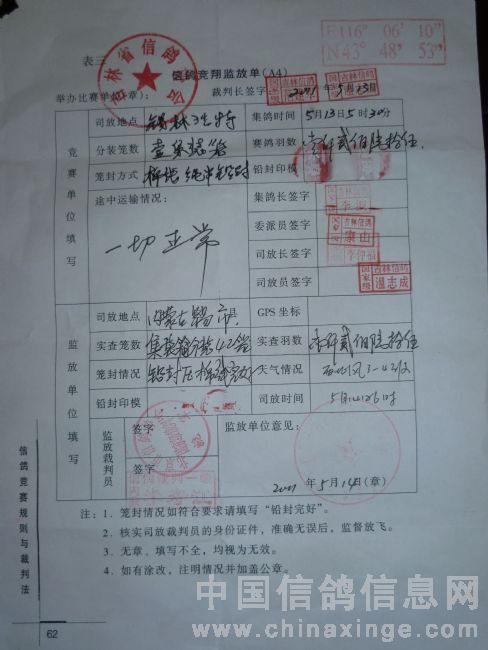 表三
E116° 06′ 10″
N43° 48′ 53″
吉林省信鸽协会
信鸽竞翔监放单(A4)
举办比赛单位(章): 裁判长签字
5月13日
竞赛单位填写
司放地点 锡林浩特 集鸽时间 5月13日5时30分
分装笼数 赛鸽羽数 壹仟贰佰陆拾伍
笼封方式 铅封印模
途中运输情况: 集鸽长签字
一切正常
委派员签字
司放长签字
司放员签字
国家级 吉林信鸽 温志成
监放单位填写
司放地点 内蒙古锡市 GPS 坐标
实查笼数 集装箱分笼42笼 实查羽数 壹仟贰佰陆拾伍
笼封情况 天气情况 西北风3-4级
铅封印模 司放时间 5月14日6时
监放裁判员 签字 监放单位意见:
签字
年5月14日(章)
注:1、笼封情况如符合要求请填写“铅封完好”。
2、核实司放裁判员的身份证件,准确无误后,监督放飞。
3、无章、填写不全,均视为无效。
4、如有涂改,注明情况并加盖公章。
信鸽竞赛规则与裁判法
62
中国信鸽信息网
www.chinaxinge.com